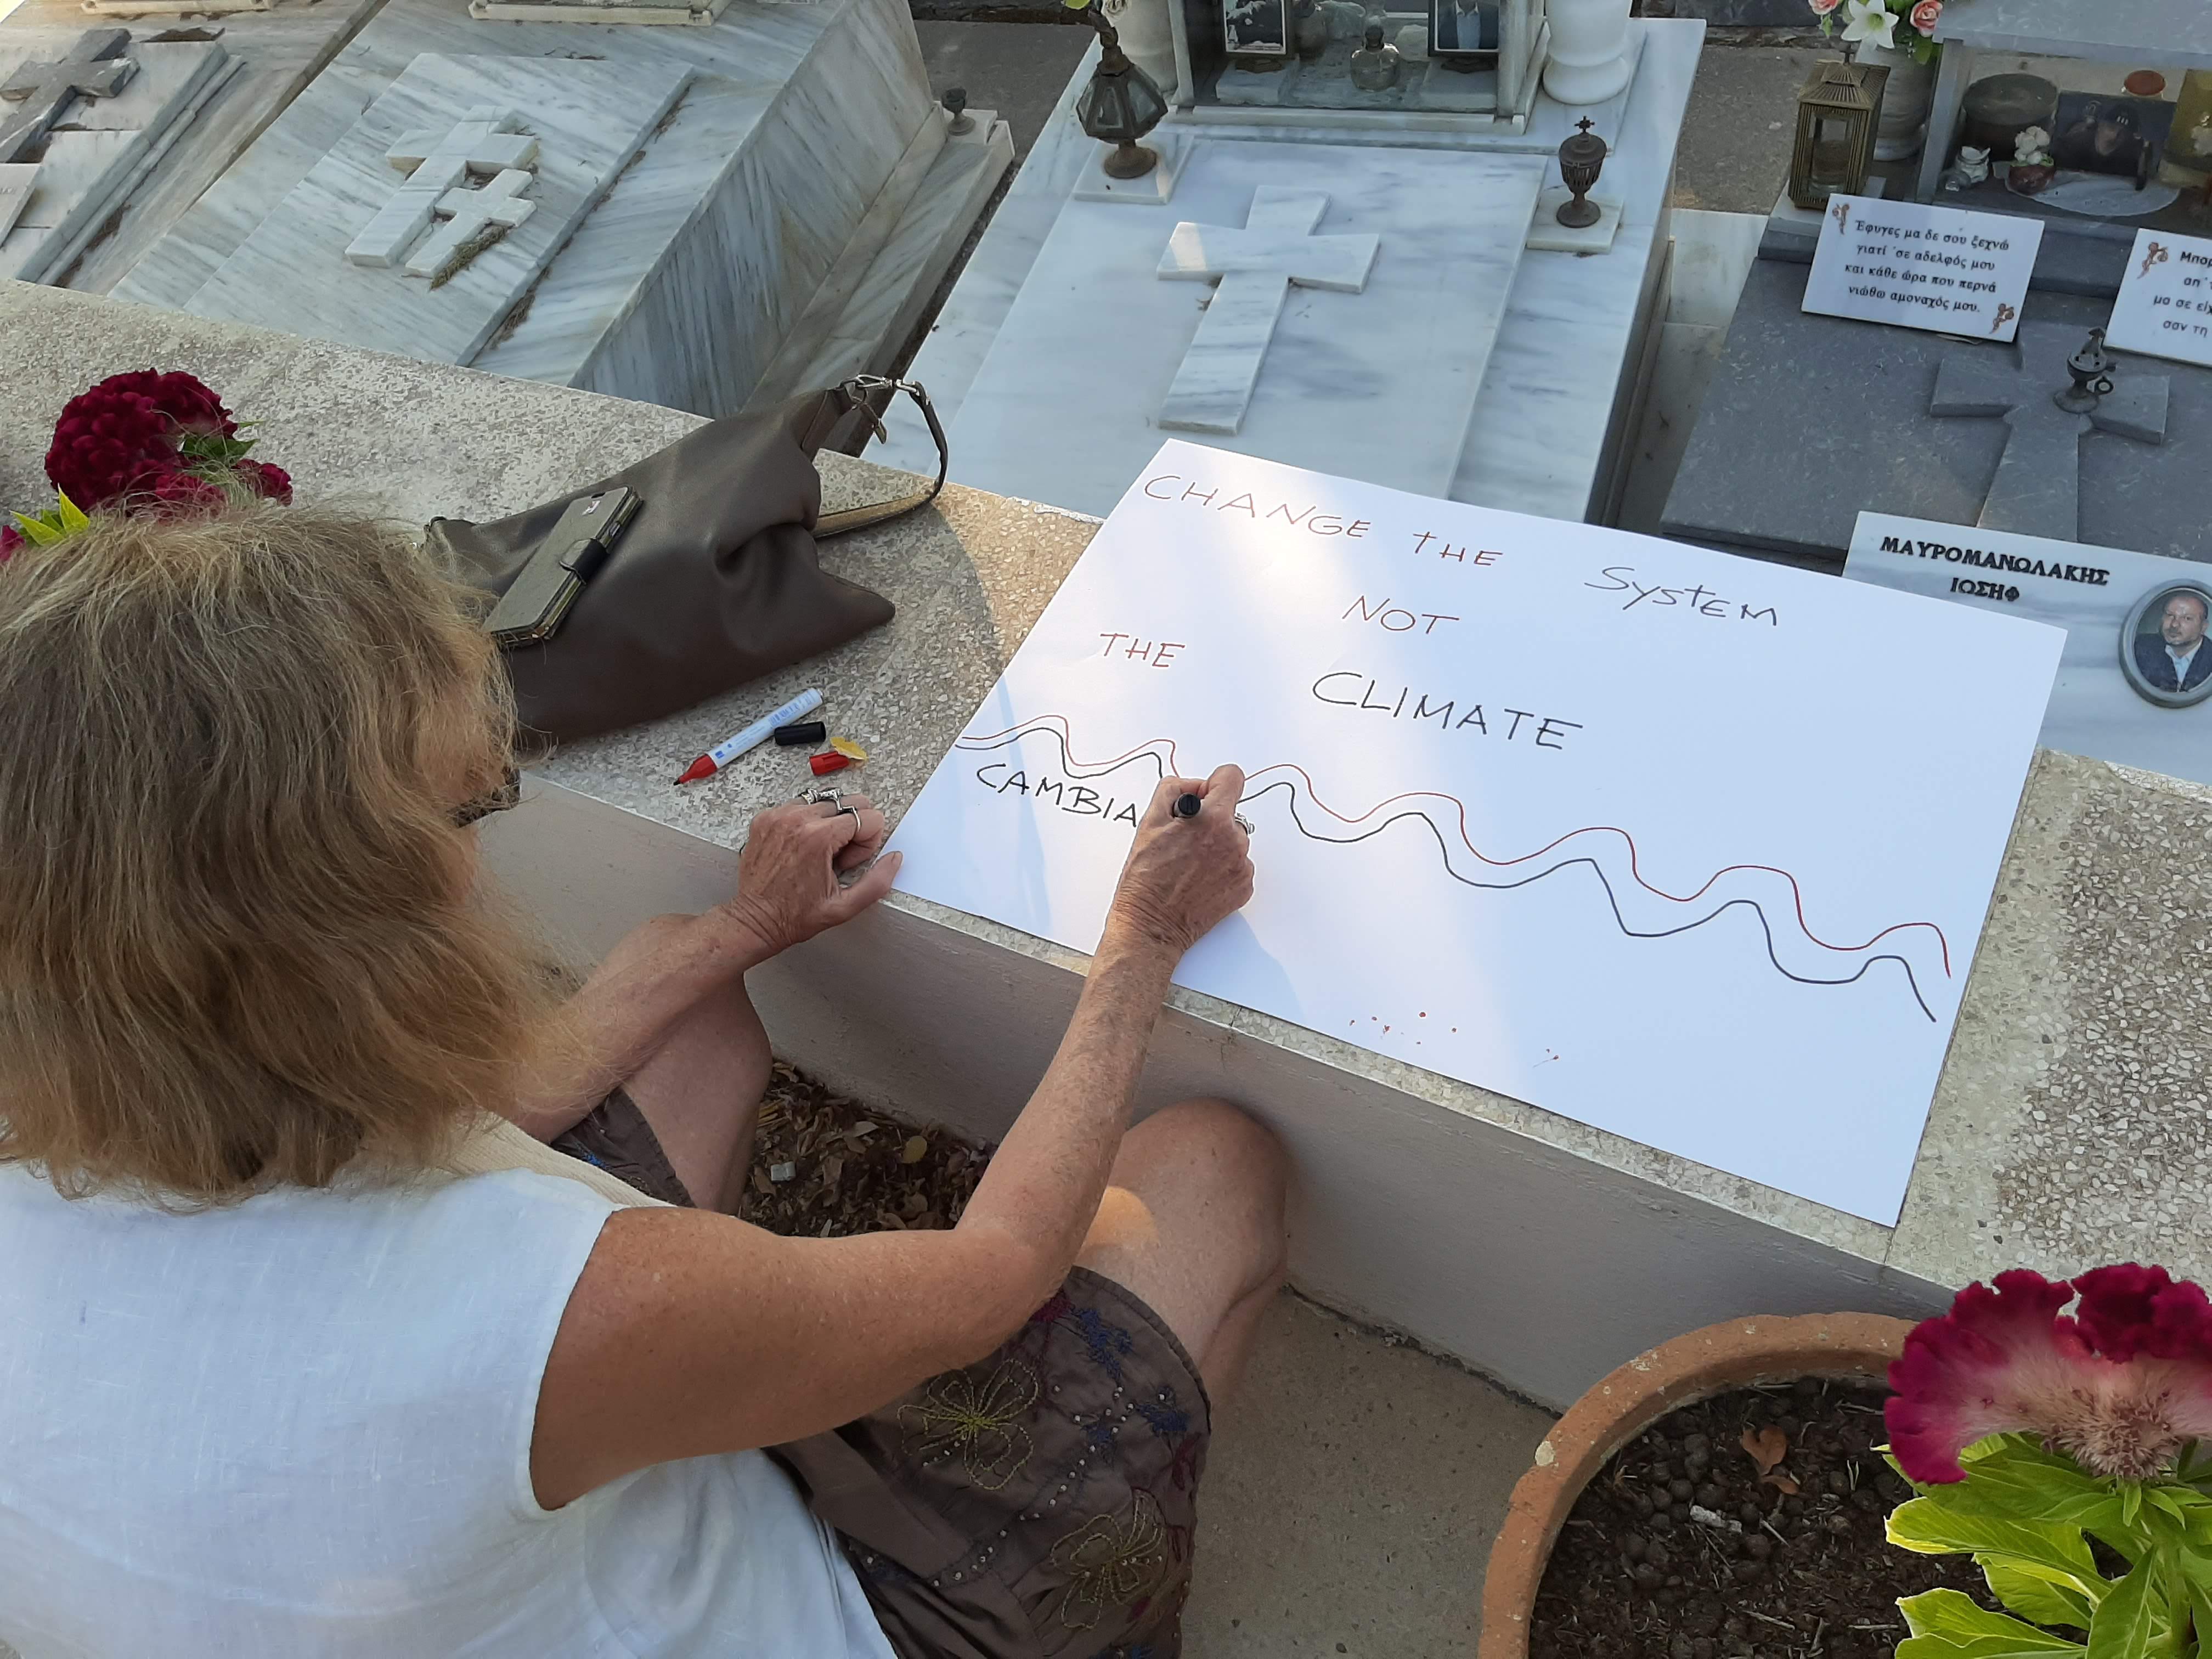 Έφυγες μα δε σου ξεχνώ
γιατί ΄σε αδελφός μου
και κάθε ώρα που περνά
νιώθω αμοναχός μου.
απ΄
μα σε
σαν τη
ΜΑΥΡΟΜΑΝΩΛΑΚΗΣ
ΙΩΣΗΦ
CHANGE THE SYSTEM
NOT
THE CLIMATE
CAMBIA